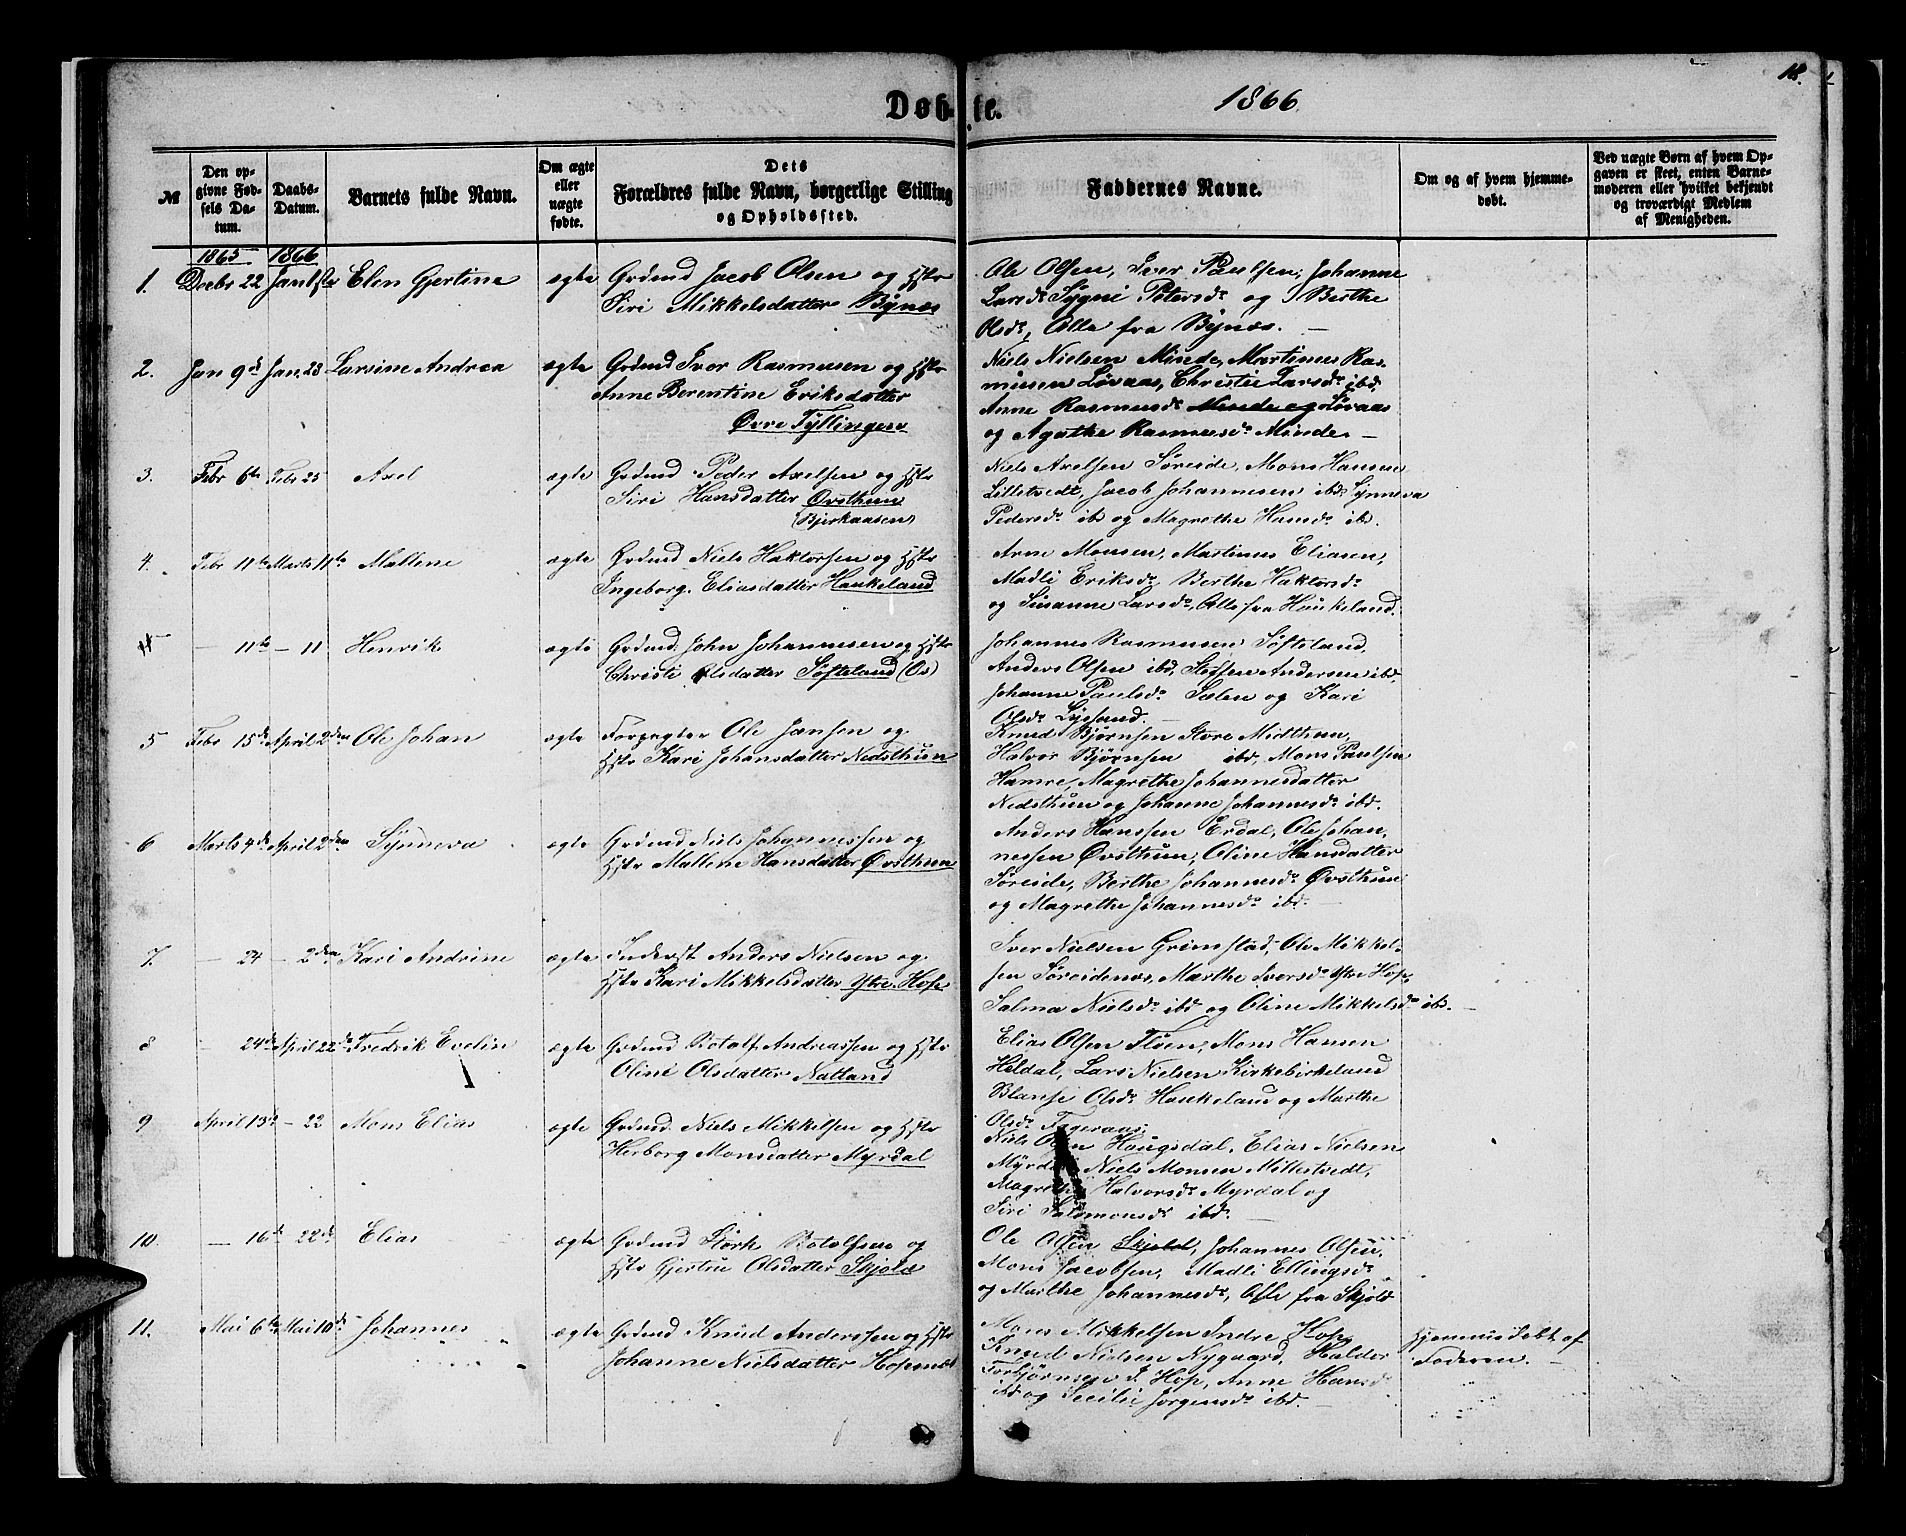 Døbte.
1866.
18.
№
Den opgivne Fødsels Datum.
Daabs-Datum.
Barnets fulde Navn.
Om ægte eller uægte fødte.
Dets Forældres fulde Navn, borgerlige Stilling og Opholdssted.
Faddernes Navne.
Om og af hvem hjemmedøbt.
Ved uægte Børn af hvem Opgaven er skeet, enten Barnemoderen eller hvilket bekjendt og troværdigt Medlem af Menigheden.
1865 1866
1. Decbr 22 Jan 1ste Elen Gjertine ægte Grdmd Jacob Olsen og Hstr
Siri Mikkelsdatter Bynes
Ole Olsen, Iver Paulsen, Johanne
Larsdr Sygni Petersdr og Berthe
Olsdr, Alle fra Bynæs.
2. Jan 9de Jan. 23 Larsine Andrea ægte Grdmd Iver Rasmusen og Hstr
Anne Berentine Eriksdatter
Øvre Tyllingen
Niels Nielsen Minde, Martinus Ras-
musen Løvaas, Christie Larsdr ibd,
Anne Rasmusdr Minde og Løvaas
og Agathe Rasmusdr Minde. —
3. Febr 6te Febr 25 Axel ægte Grdmd Peder Axelsen og Hstr
Siri Hansdatter Øvsthun
(Bjerkaasen)
Niels Axelsen Søreide, Mons Hansen
Lilletvedt, Jacob Johannesen ibd, Synneva
Pedersdr ibd og Magrethe Hansdr ibd.
4. Febr 11te Marts 11te Mallene ægte Grdmd Niels Haktorsen og Hstr
Ingeborg Eliasdatter Haukeland
Arne Monsen, Martinus Eliasen,
Madli Eriksdr Berthe Haktorsdr
og Susanne Larsdr, Alle fra Haukeland.
— 11te — 11 Henrik ægte Grdmd John Johannesen og Hstr
Christi Olsdatter Søfteland (Os)
Johannes Rasmusen Søfteland,
Anders Olsen ibd, Steffen Andersen ibd,
Johanne Paulsdr Sælen og Kari
Olsdr Lysfand. —
5 Febr 15de April 2den Ole Johan ægte Forpagter Ole Jansen og
Hstr Kari Johansdatter Nedsthun
Knud Bjørnsen Store Midthun,
Halvor Bjørnsen ibd, Mons Paulsen
Hamre, Magrethe Johannesdatter
Nedsthun og Johanne Johannesdr ibd.
6 Marts 4de April 2den Synneva ægte Grdmd Niels Johannessen og
Hstr Mallene Hansdatter Øvsthun
Anders Hanssen Erdal, Ole Johan-
nessen Øvsthun, Oline Hansdatter
Søreide, Berthe Johannesdr Øvsthun
og Magrethe Johannesdr ibd. —
7. — 24 — 2den Kari Andrine ægte Inderst Anders Nielsen og
Hstr Kari Mikkelsdatter Ytre Hop
Iver Nielsen Grimstad, Ole Mikkel-
sen Søreidenæs, Marthe Iversdr Ytre Hop,
Salma Nielsdr ibd og Oline Mikkelsdr ibd. —
8 — 24de April 22de Fredrik Evelin ægte Grdmd Botolf Andreassen og Hstr
Oline Olsdatter Natland
Elias Olsen Fløen, Mons Hansen
Heldal, Lars Nielsen Kirkebirkeland
Blanse Olsdr Haukeland og Marthe
Olsdr Fageraas.
9 April 13de — 22 Mons Elias ægte Grdmd Niels Mikkelsen og Hstr
Herborg Monsdatter Myrdal
Niels Olsen Haugsdal, Elias Nielsen
Myrdal, Niels Monsen Mittetvedt,
Magrethe Halvorsdr Myrdal og
Siri Salomonsdr ibd. —
10. — 16de 22de Elias ægte Grdmd Størk Botolfsen og
Hstr Gjertru Olsdatter Skjold
Ole Olsen Skjold, Johannes Olsen,
Mons Jacobsen, Madli Ellingsdr
og Marthe Johannesdr, Alle fra Skjold
11. Mai 6te Mai 10de Johannes ægte Grdmd Knud Anderssen og Hstr
Johanne Nielsdatter Hopsnes
Mons Mikkelsen Indre Hop,
Knud Nielsen Nygaard, Halder
Torbjørnsen I. Hop, Anne Hansdr
ibd og Secilie Jørgensdr ibd. —
Hjemmedøbt af
Faderen. —